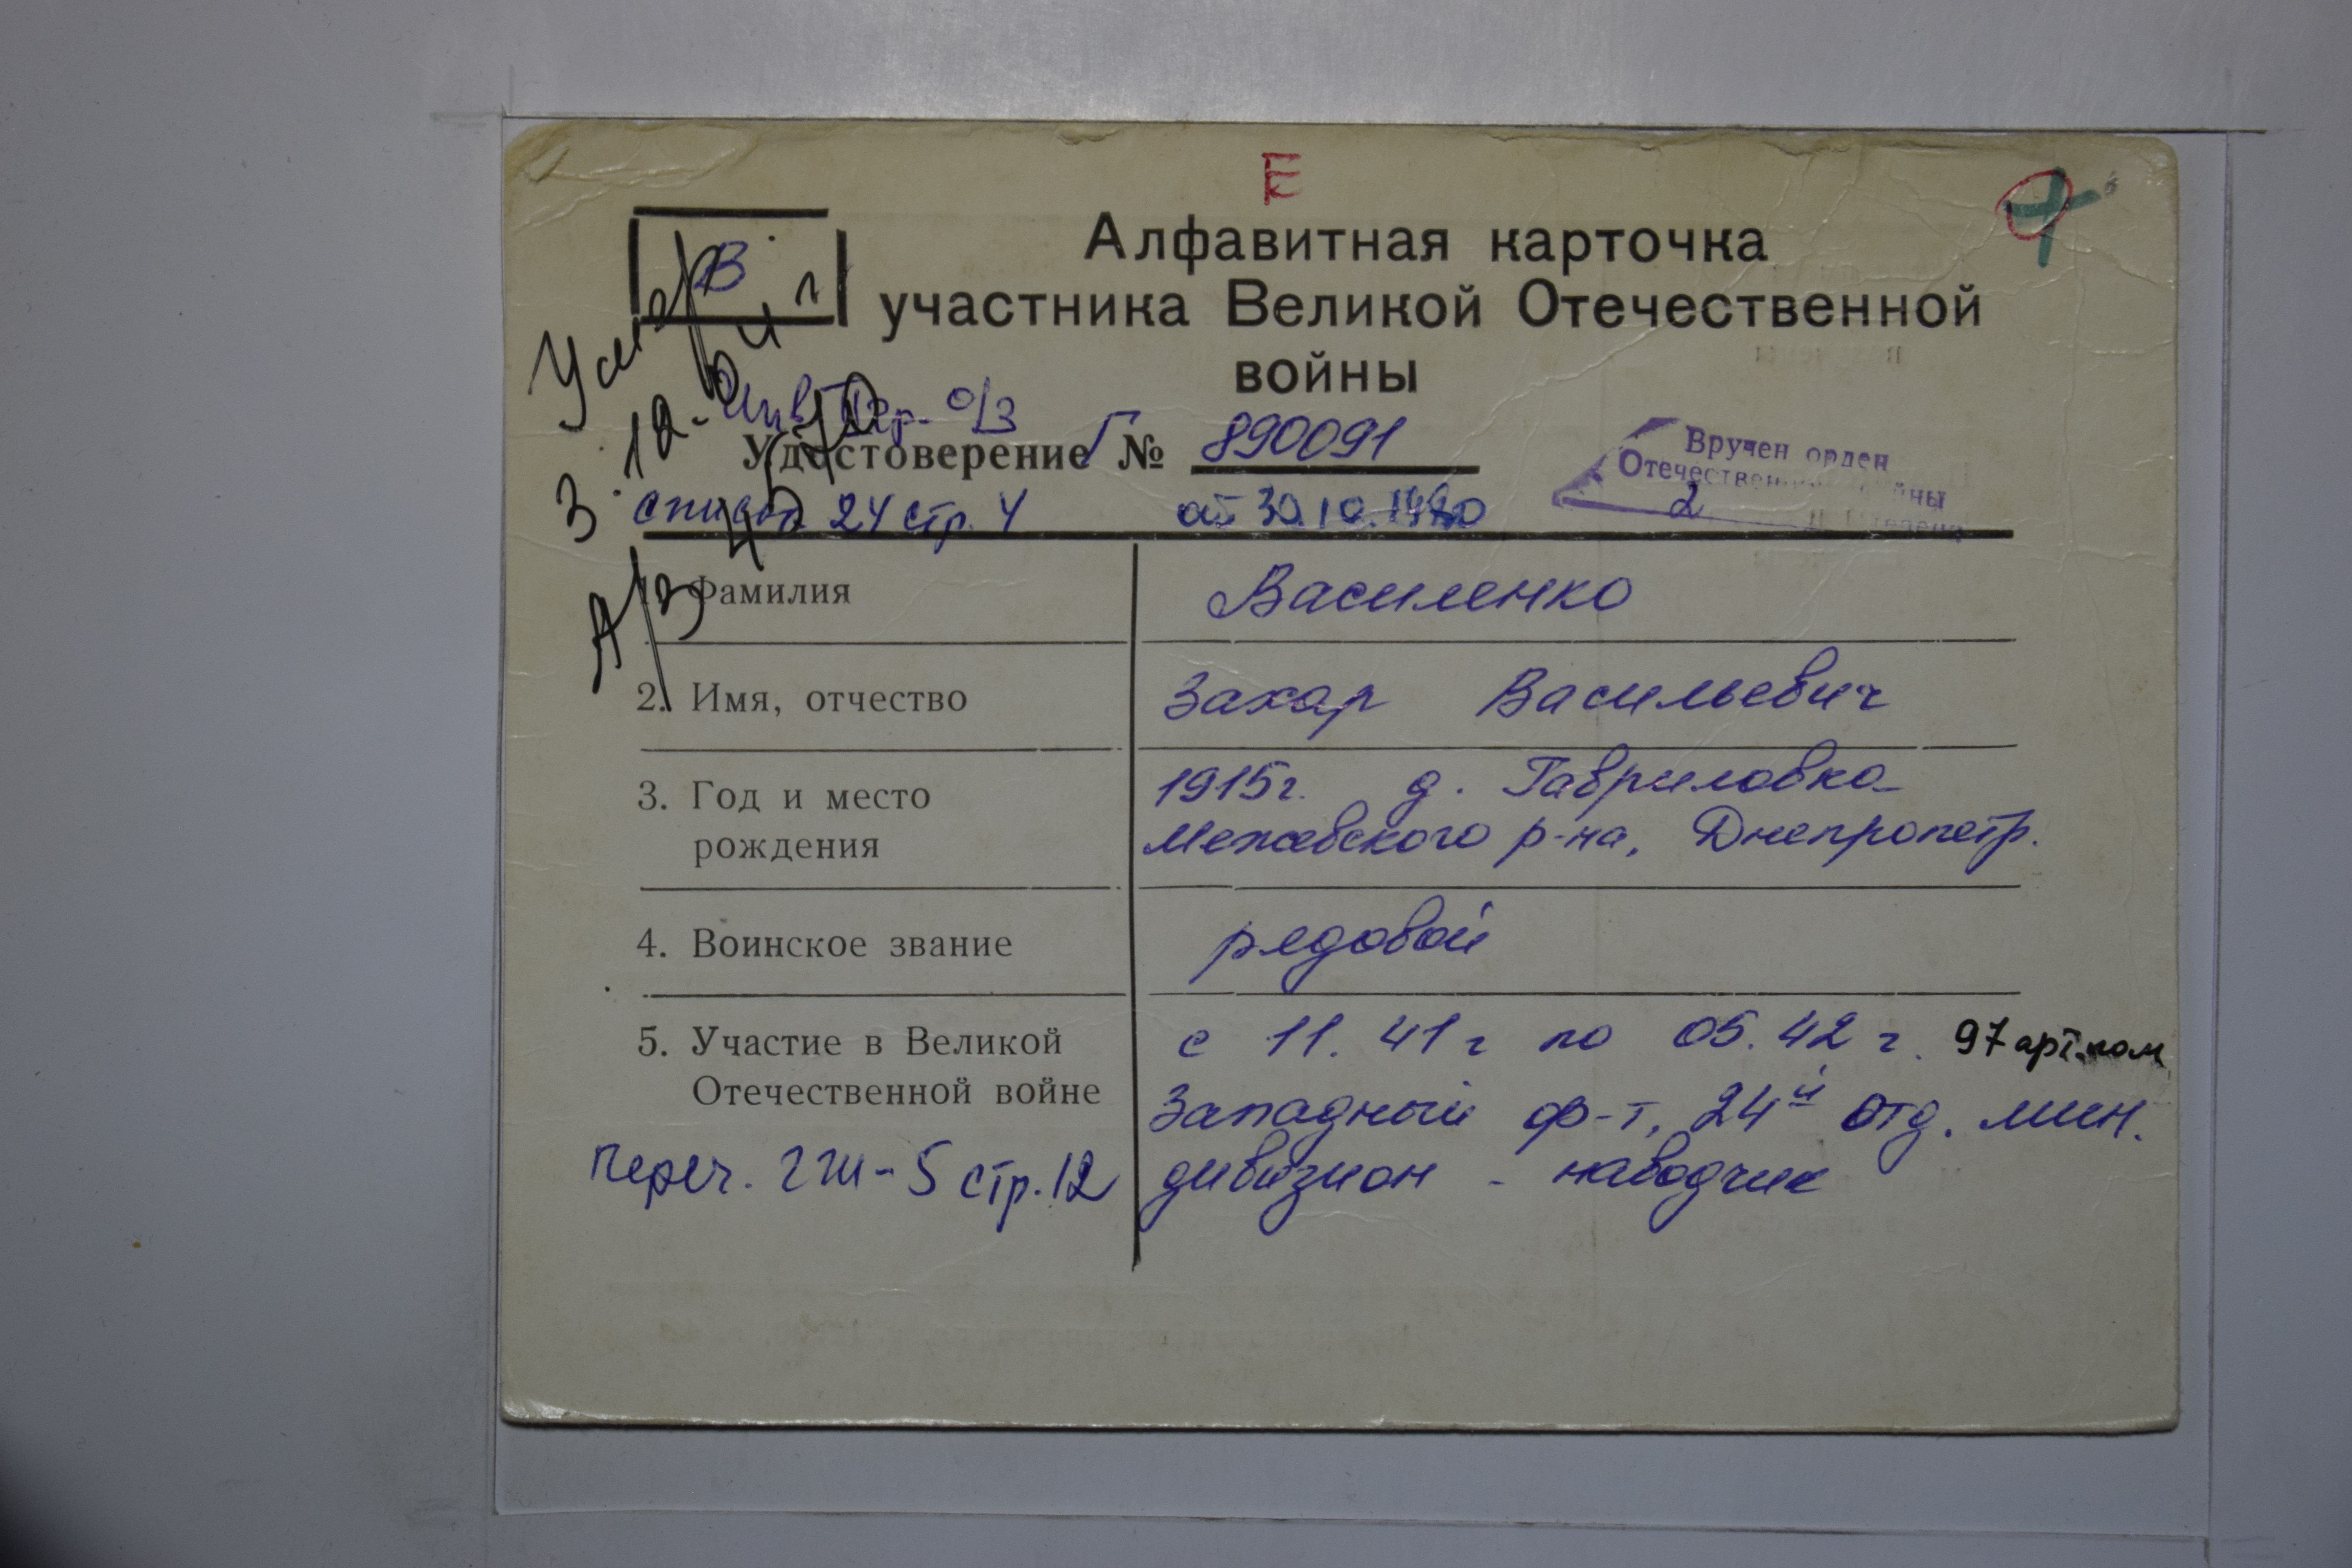 Е
Алфавитная карточка
участника Великой Отечественной
войны
В
Умер
Инв. Iгр. о/з
Удостоверение Г № 890091
список 24 стр. 4 от 30.10.1980
Вручен орден
Отечественной войны
2 степени
А/З
1. Фамилия Василенко
2. Имя, отчество Захар Васильевич
3. Год и место 1915г. д. Гавриловка
рождения Межевского р-на, Днепропетр.
4. Воинское звание рядовой
5. Участие в Великой с 11. 41 г по 05. 42 г. 97 арт.полк
Отечественной войне Западный ф-т, 24й отд. мин.
переч. ГШ-5 стр.12 дивизион - наводчик